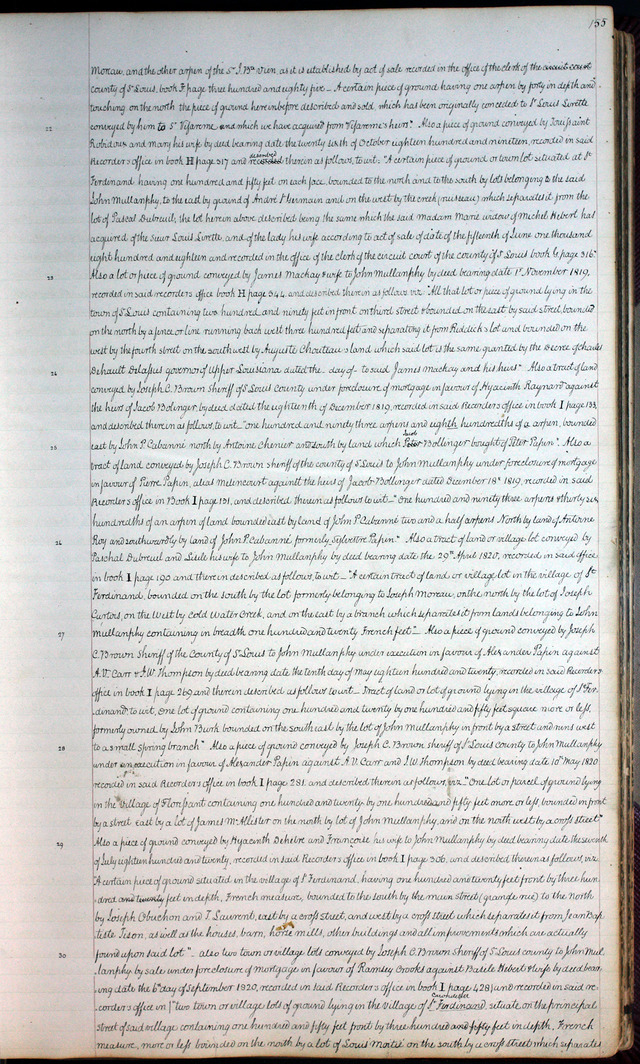 155
Moreau, and the other arpen of the Sr. J. Bte Vien, as it is established by act of sale recorded in the office of the clerk of the circuit court
county of St Louis, book F page three hundred and eighty five — A certain piece of ground having one arpen by forty in depth and
touching on the north the piece of ground hereinbefore described and sold, which has been originally conceded to Sr Louis Lirette
22 conveyed by him to Sr Tifarome and which we have acquired from Tifarome's heirs". Also a piece of ground conveyed by Toussaint
Robidoux and Mary his wife by deed bearing date the twenty sixth of October eighteen hundred and nineteen, recorded in said
Recorders office in book H page 317 and described therein as follows, to wit: "A certain piece of ground or town lot situated at St
Ferdinand having one hundred and fifty feet on each face, bounded to the north and to the south by lots belonging to the said
John Mullanphy, to the east by ground of André St Germain and on the west by the creek (ruisseau) which separates it from the
lot of Pascal Dubreuil; the lot herein above described being the same which the said Madam Marie widow of Michel Hebert has
acquired of the Sieur Louis Lirette, and of the lady his wife according to act of sale of date of the fifteenth of June one thousand
eight hundred and eighteen and recorded in the office of the Clerk of the circuit court of the county of St Louis book G page 316"
23 Also a lot or piece of ground conveyed by James Mackay & wife to John Mullanphy by deed bearing date 1st November 1819,
recorded in said recorders office book H page 344, and described therein as follows viz: "All that lot or piece of ground lying in the
town of St Louis containing two hundred, and ninety feet in front on third street & bounded on the east by said street, bounded
on the north by a fence or line running back west three hundred feet and separating it from Riddick's lot and bounded on the
west by the fourth street on the southwest by Auguste Chouteau's land which said lot is the same granted by the Decree of Charles
24 Dehault Delassus governor of Upper Louisiana dated the _ day of _ to said James Mackay and his heirs". Also a tract of land
conveyed by Joseph C. Brown Sheriff of St Louis County under foreclosure of mortgage in favour of Hyacinth Raynard against
the heirs of Jacob Bolinger by deed, dated the eighteenth of December 1819, recorded in said Recorders office in book I page 133,
and described therein as follows, to wit: "one hundred and ninety three arpens and eighth hundredths of a arpen, bounded
25 east by John P. Cabanné north by Antoine Chenier and south by land which said Bollinger bought of Peter Papin". Also a
tract of land conveyed by Joseph C. Brown sheriff of the county of St Louis to John Mullanphy under foreclosure of mortgage
in favour of Pierre Papin, alias Melencourt against the heirs of Jacob Bollinger dated December 18th 1819, recorded in said
Recorder's office in Book I page 131, and described therein as follows to wit — "One hundred and ninety three arpens & thirty six
hundredths of an arpen of land bounded east by land of John P. Cabanné two and a half arpens North by land of Antoine
26 Roy and southwardly by land of John P. Cabanné formerly Sylvestre Papin". Also a tract of land or village lot conveyed by
Paschal Dubreuil and Lisele his wife to John Mullanphy by deed bearing date the 29th April 1820, recorded in said office
in book I page 190 and therein described as follows, to wit — "A certain tract of land or village lot in the village of St
Ferdinand, bounded on the south by the lot formerly belonging to Joseph Moreau, on the north by the lot of Joseph
Curtois, on the West by Cold Water Creek, and on the east by a branch which separates it from lands belonging to John
27 Mullanphy containing in breadth one hundred and twenty French feet" — Also a piece of ground conveyed by Joseph
C. Brown Sheriff of the County of St Louis to John Mullanphy under execution in favour of Alexander Papin against
A. V. Carr & J. W. Thompson by deed bearing date the tenth day of May eighteen hundred and twenty, recorded in said Recorders
office in book I page 269 and therein described as follows to wit — Tract of land or lot of ground lying in the village of St Fer-
dinand, to wit, One lot of ground containing one hundred and twenty by one hundred and fifty feet square more or less,
formerly owned by John Burk bounded on the south east by the lot of John Mullanphy in front by a street and runs west
28 to a small spring branch" Also a piece of ground conveyed by Joseph C. Brown sheriff of St Louis county to John Mullanphy
under an execution in favour of Alexander Papin against A. V. Carr and J. W. Thompson by deed bearing date 10th May 1820
recorded in said Recorders office in book I page 281, and described therein as follows, viz — "One lot or parcel of ground lying
in the village of Florissant containing one hundred and twenty by one hundred and fifty feet more or less, bounded in front
by a street East by a lot of James McAllister on the north by lot of John Mullanphy, and on the north west by a cross street"
29 Also a piece of ground conveyed by Hyacinth Dehetre and Francoise his wife to John Mullanphy by deed bearing date the seventh
of July eighteen hundred and twenty, recorded in said Recorders office in book I page 306, and described therein as follows, viz
"A certain piece of ground situated in the village of St Ferdinand, having one hundred and twenty feet front by three hun-
dred and twenty feet in depth, French measure, bounded to the south by the main street (grande rue) to the north
by Joseph Obuchon and T. Laurent, east by a cross street, and west by a cross street which separates it from Jean Bap-
tiste Tison, as well as the houses, barn, horse mills, other buildings and all improvements which are actually
30 found upon said lot" — also two town or village lots conveyed by Joseph C. Brown Sheriff of St Louis county to John Mul-
lanphy by sale under foreclosure of mortgage in favour of Ramsey Crooks against Basile Hebert & wife by deed bear-
ing date the 6th day of September 1820, recorded in said Recorders office in book I page 428 and recorded in said re-
corders office in "two town or village lots of ground lying in the village of St Ferdinand, situate on the principal
street of said village containing one hundred and fifty feet front by three hundred and fifty feet in depth, French
measure, more or less bounded on the north by a lot of Louis Mortié on the south by a cross street which separates